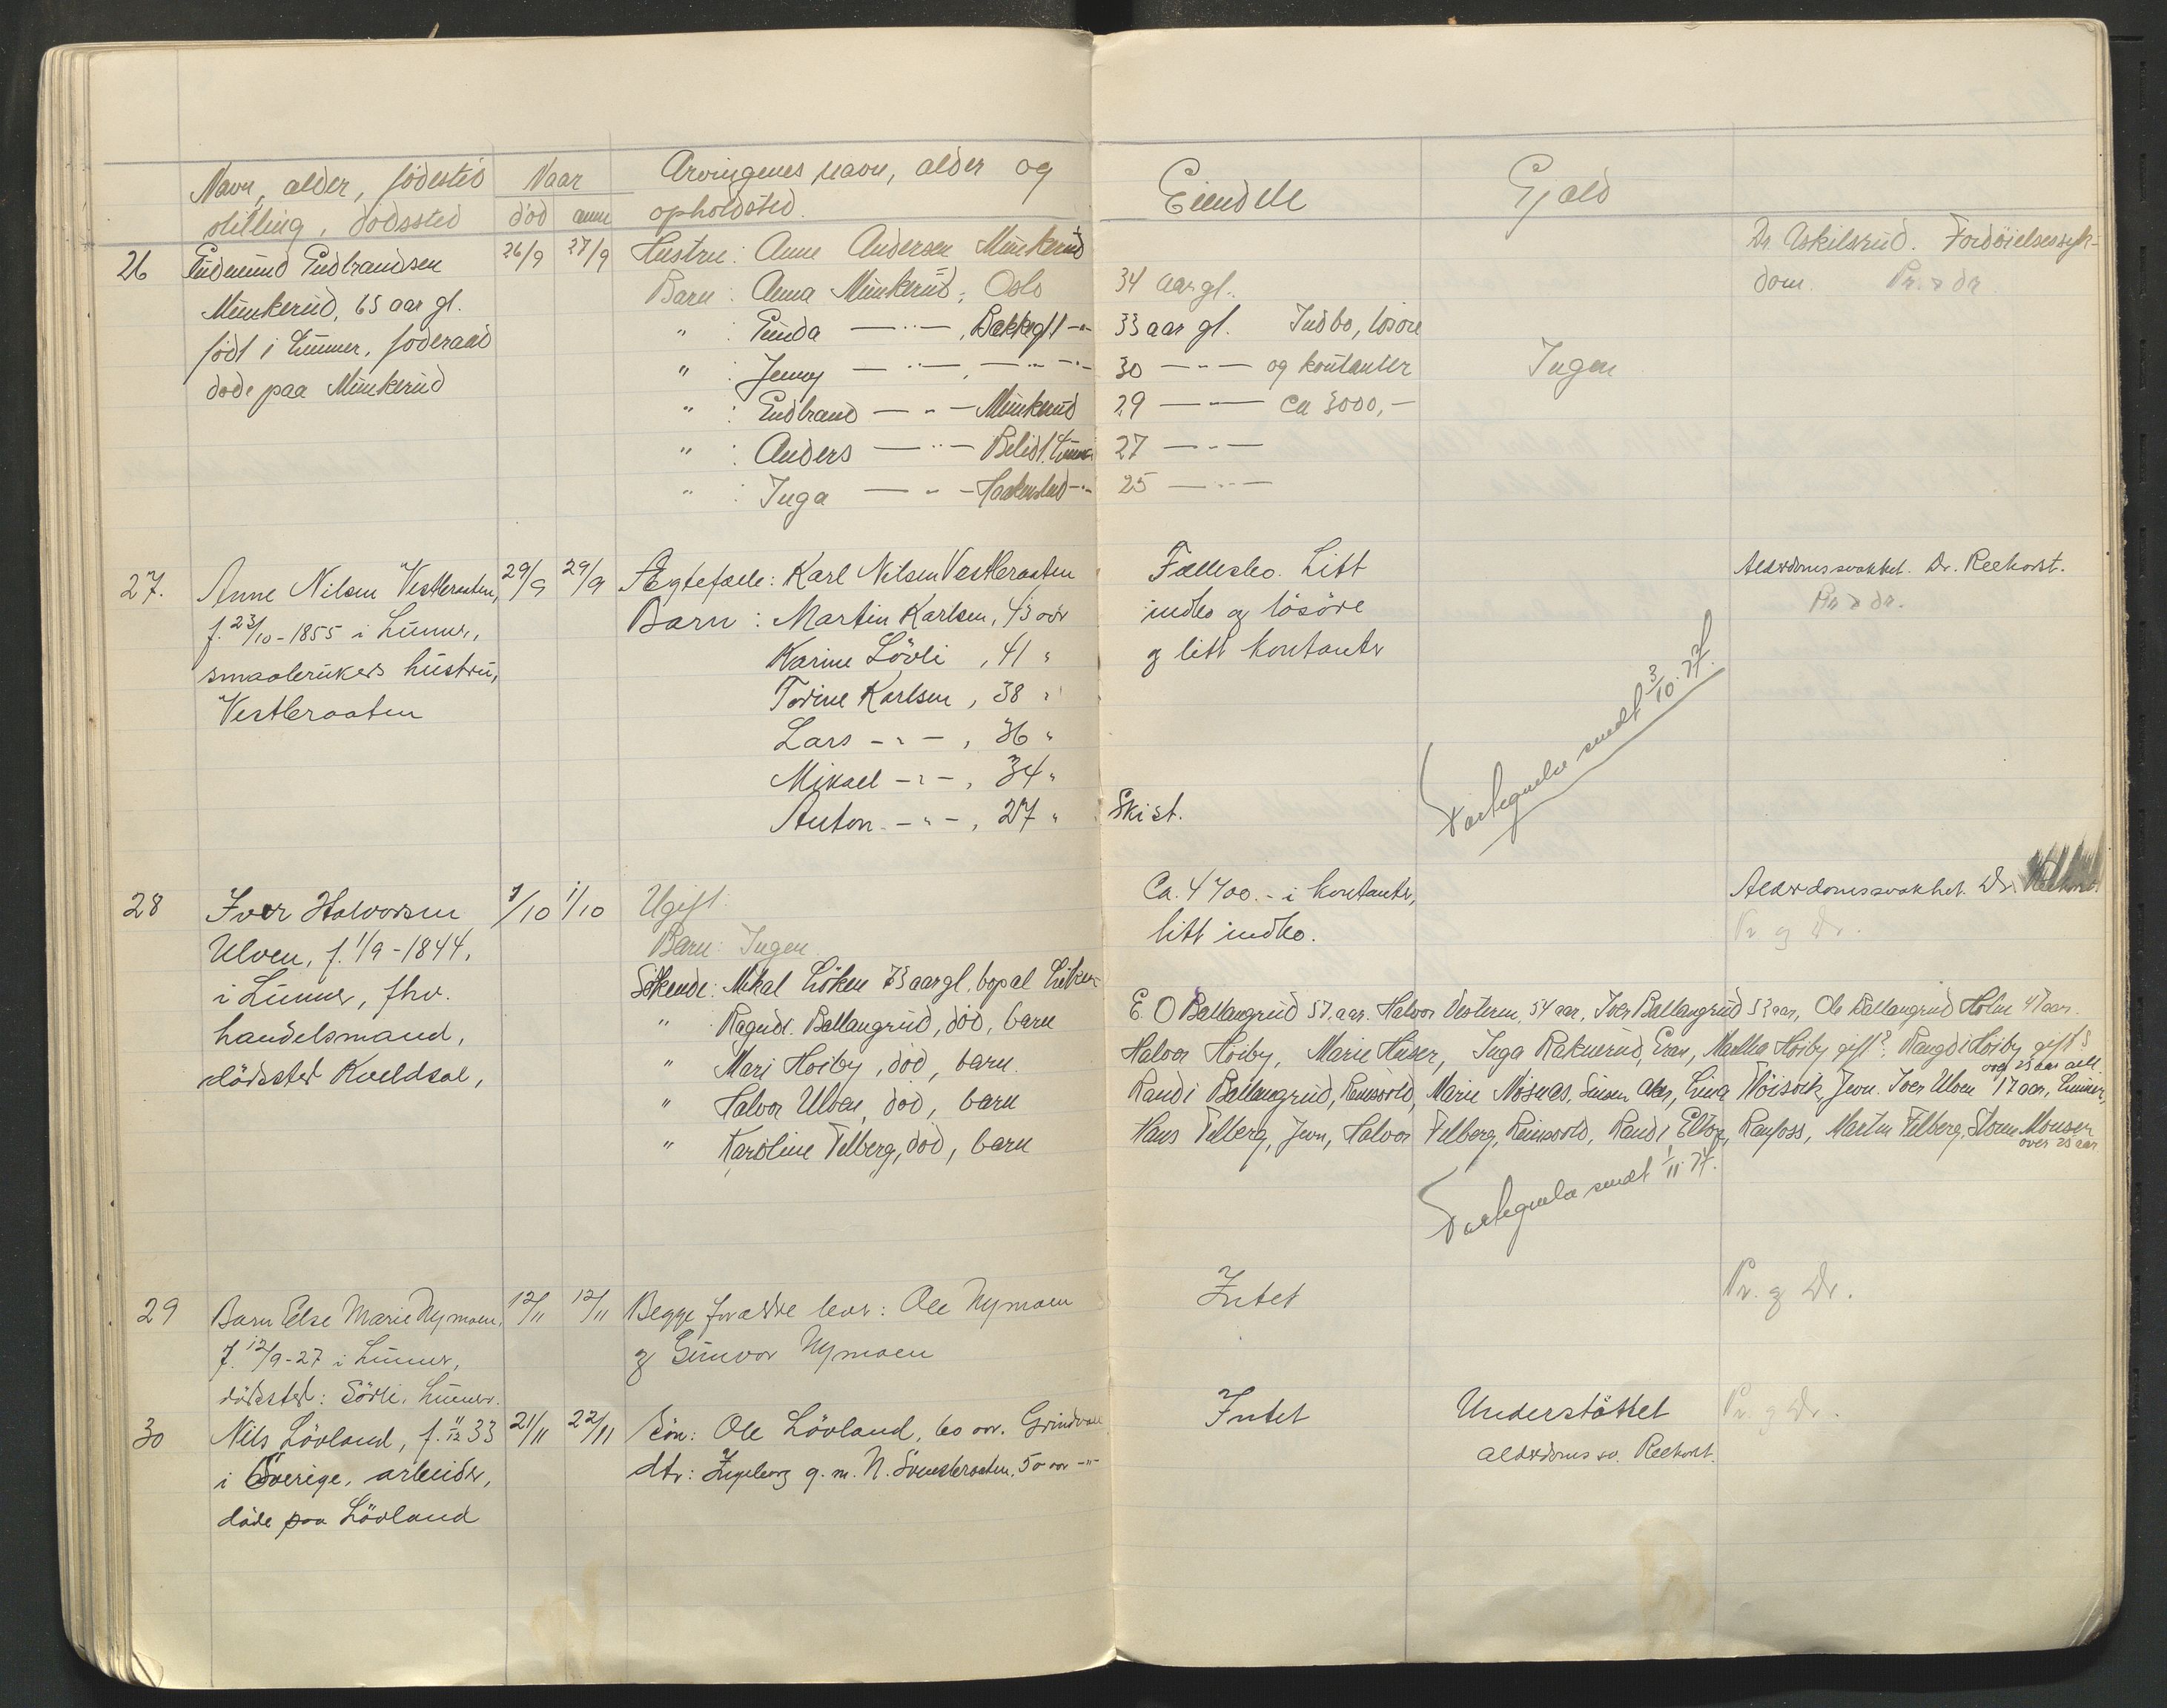 Navn, alder, fødested
stilling, dødssted
Naar
død anm
Arvingenes navn, alder og
opholdsted.
Eiendele
Gjæld
26 Gudmund Gudbrandsen
Munkerud, 65 aar gl.
født i Lunner, føderaad
døde paa Munkerud
26/9 27/9
Hustru: Anne Andersen Munkerud
Barn: Anna Munkerud, Oslo 34 aar gl.
" : Gunda — " —, 33 aar gl. Indbo, løsøre
" : Jenny — " —, — " — 30 — " — og kontanter
" : Gudbrand — " — Munkerud 29 — " — ca 3000,-
" : Anders — " — 27 — " —
" : Inga — " — 25 — " —
Ingen
Dr. Askilsrud. Fordøielsessyk-
dom. Pr. & dr.
27. Anne Nilsen Vestbraaten,
f. 23/10-1855 i Lunner,
smaabrukers hustru,
Vestbraaten
29/9 29/9
Ægtefælle: Karl Nilsen Vestbraaten
Barn: Martin Karlsen, 43 aar
Karine Lövli, 41 "
Torine Karlsen, 38 "
Lars - " -, 36 "
Mikael - " -, 34 "
Anton - " -, 27 " Skist.
Fællesbo. Litt
indbo og lösöre
og litt kontanter
Fortegnelse sendt 3/10.27.
Alderdomssvakhet. Dr. Reehorst.
Pr & dr.
28 Iver Halvorsen
Ulven, f. 1/9-1844,
i Lunner, fhv.
handelsmand,
dödssted Kveldsol,
1/10 1/10
Ugift
Barn: Ingen
Søkende: Mikal Løken 73 aar gl, bopæl
" Ragnd. Ballangrud, død, barn
" Mari Høiby, død, barn
" Halvor Ulven, død, barn
" Karoline Felberg, død, barn
Ca. 4700.- i kontanter,
litt indbo.
Alderdomssvakhet. Dr.
Pr og Dr.
E. O Ballangrud 57 aar. Halvor Vesteren, 54 aar, Iver Ballangrud 52 aar, Ole Ballangrud Holm 47 aar.
Halvor Høiby, Marie Huser, Inga Raknerud, Gran, Martha Høiby gift?, Rangdi Høiby gift?
over 25 aar alle
Randi Ballangrud, Raufosvold, Marie Næsnes, Lina Jevn. Iver Ulven 17 aar, Lunner,
Hans Felberg, Jevn, Halvor Felberg, Randi Elton, Raufoss, Martin Felberg, Storm Monsen
over 25 aar
Fortegnelse sendt 1/11.27.
29 Barn Else Marie Nymoen,
f. 12/9-27 i Lunner,
dödssted: Sörli, Lunner.
12/11 12/11
Begge forældre lever: Ole Nymoen
og Gunvor Nymoen
Intet
Pr. og Dr.
30 Nils Lövland, f. 11/12 33
i Sverige, arbeider,
döde paa Lövland
21/11 22/11
Sön: Ole Lövland, 60 aar. Grindvoll
dtr: Ingeborg g. m. N. Svensbraaten, 50 aar - " -
Intet
Understöttet
alderdomssv. Reehorst.
Pr. og Dr.